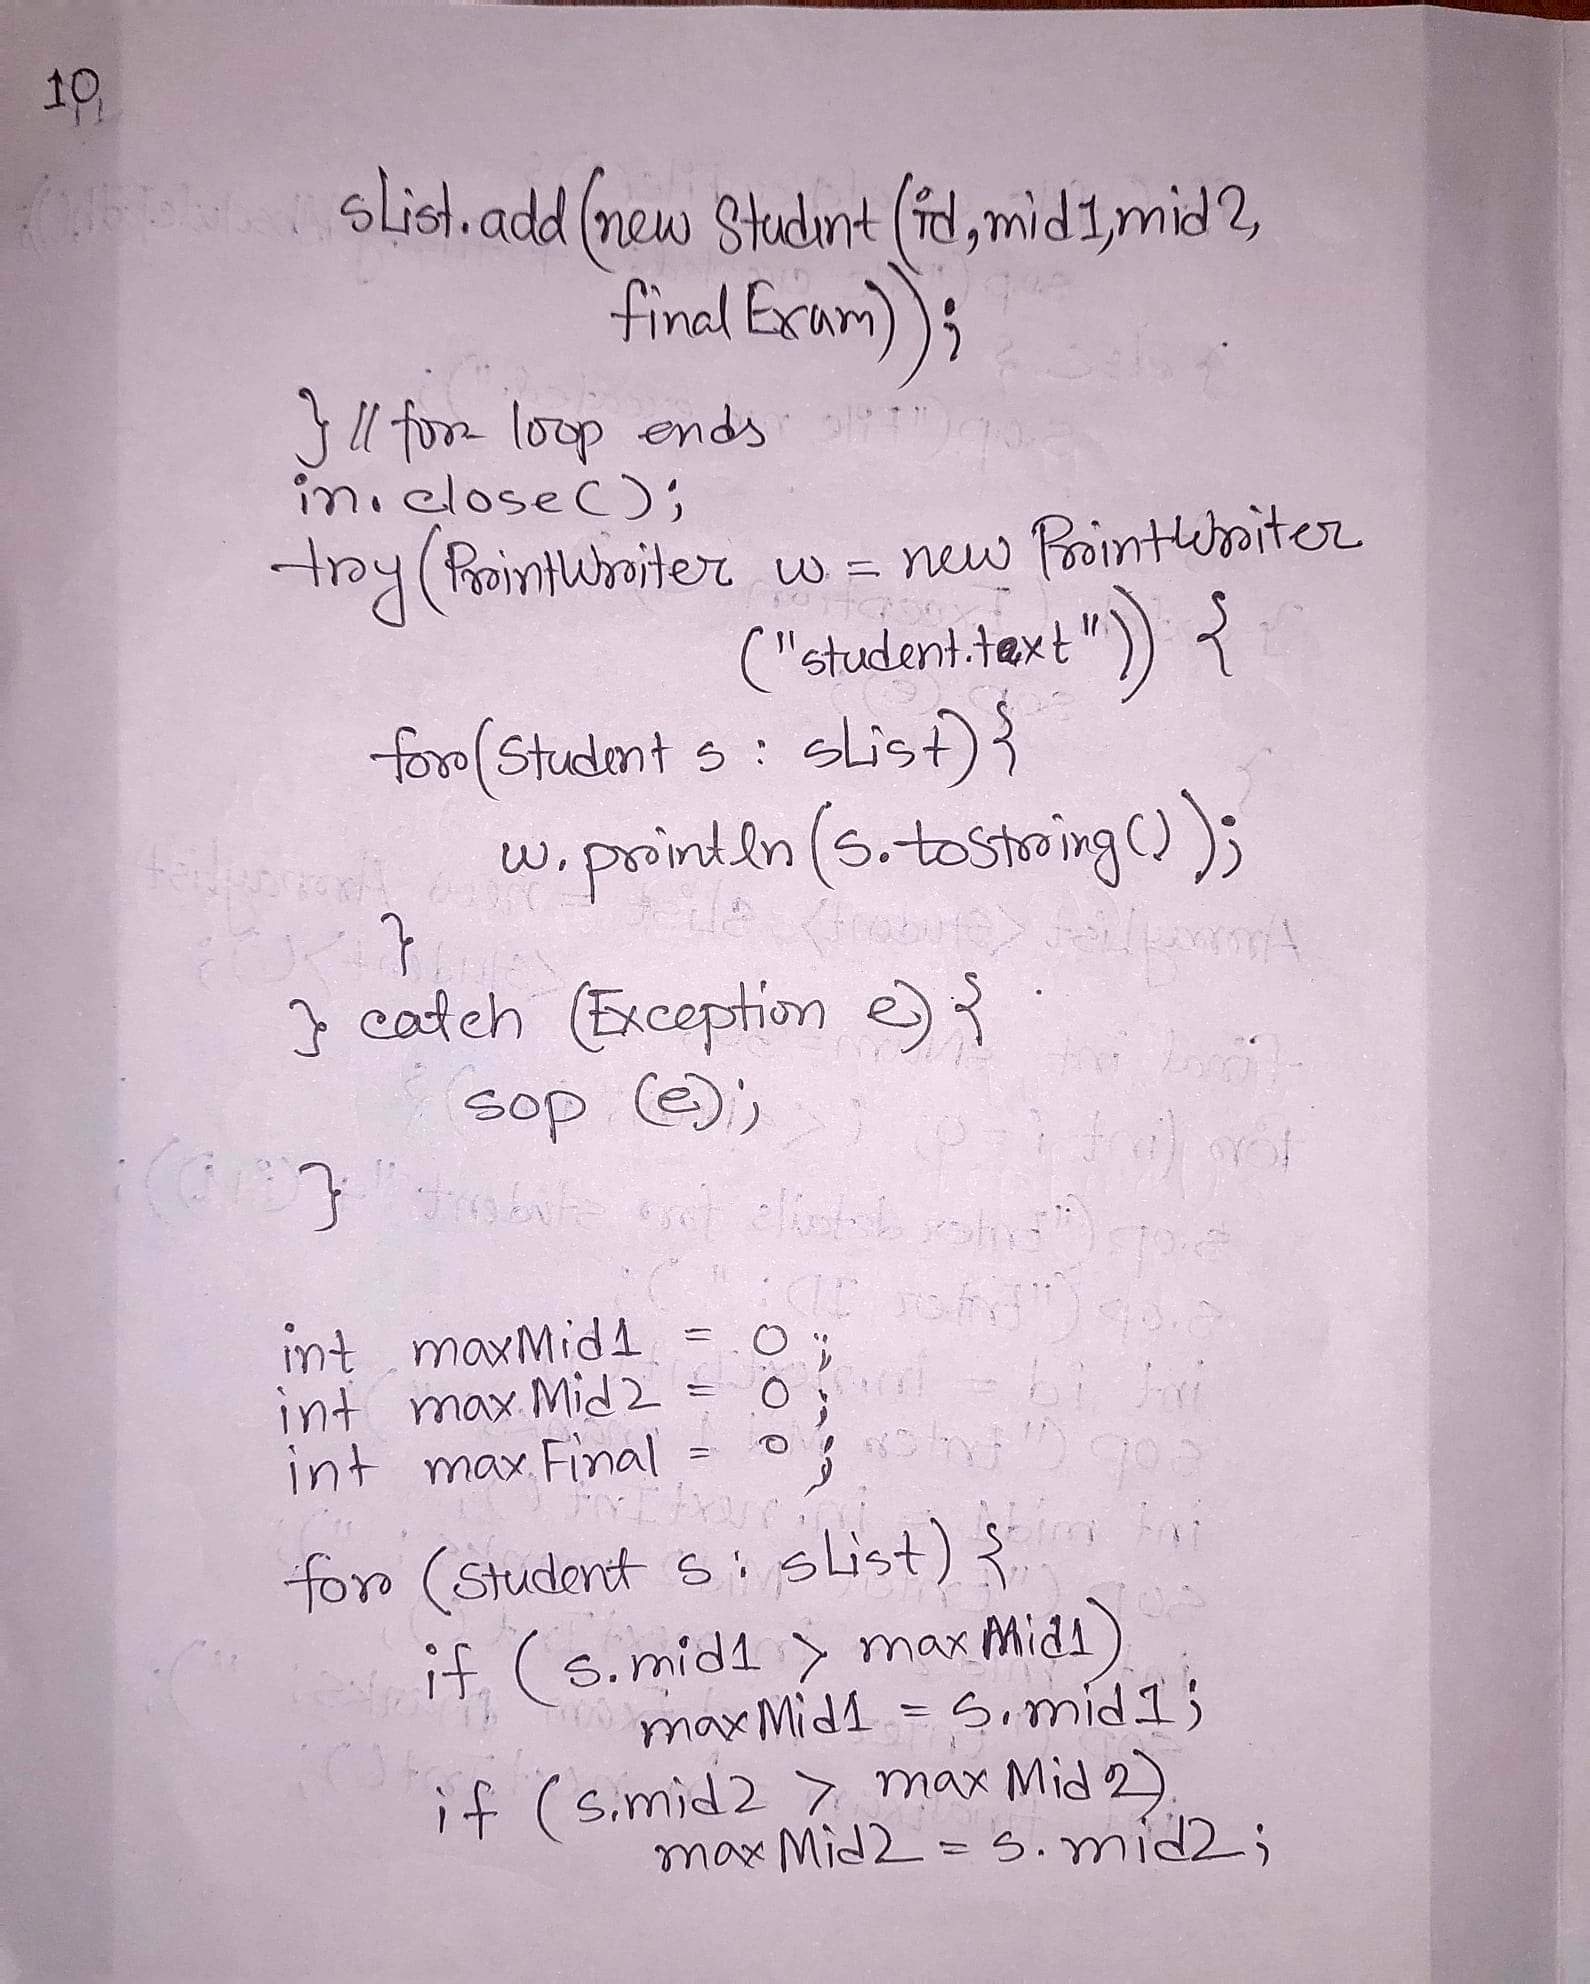 10
sList.add(new Student(id,mid1,mid2,
finalExam));
} // for loop ends
in.close();
try(PrintWriter w = new PrintWriter
("student.text")) {
for(Student s : sList){
w.println(s.toString());
}
} catch (Exception e) {
sop (e);
}
int maxMid1 = 0;
int maxMid2 = 0;
int maxFinal = 0;
for (Student s : sList) {
if (s.mid1 > maxMid1)
maxMid1 = s.mid1;
if (s.mid2 > maxMid2)
maxMid2 = s.mid2;